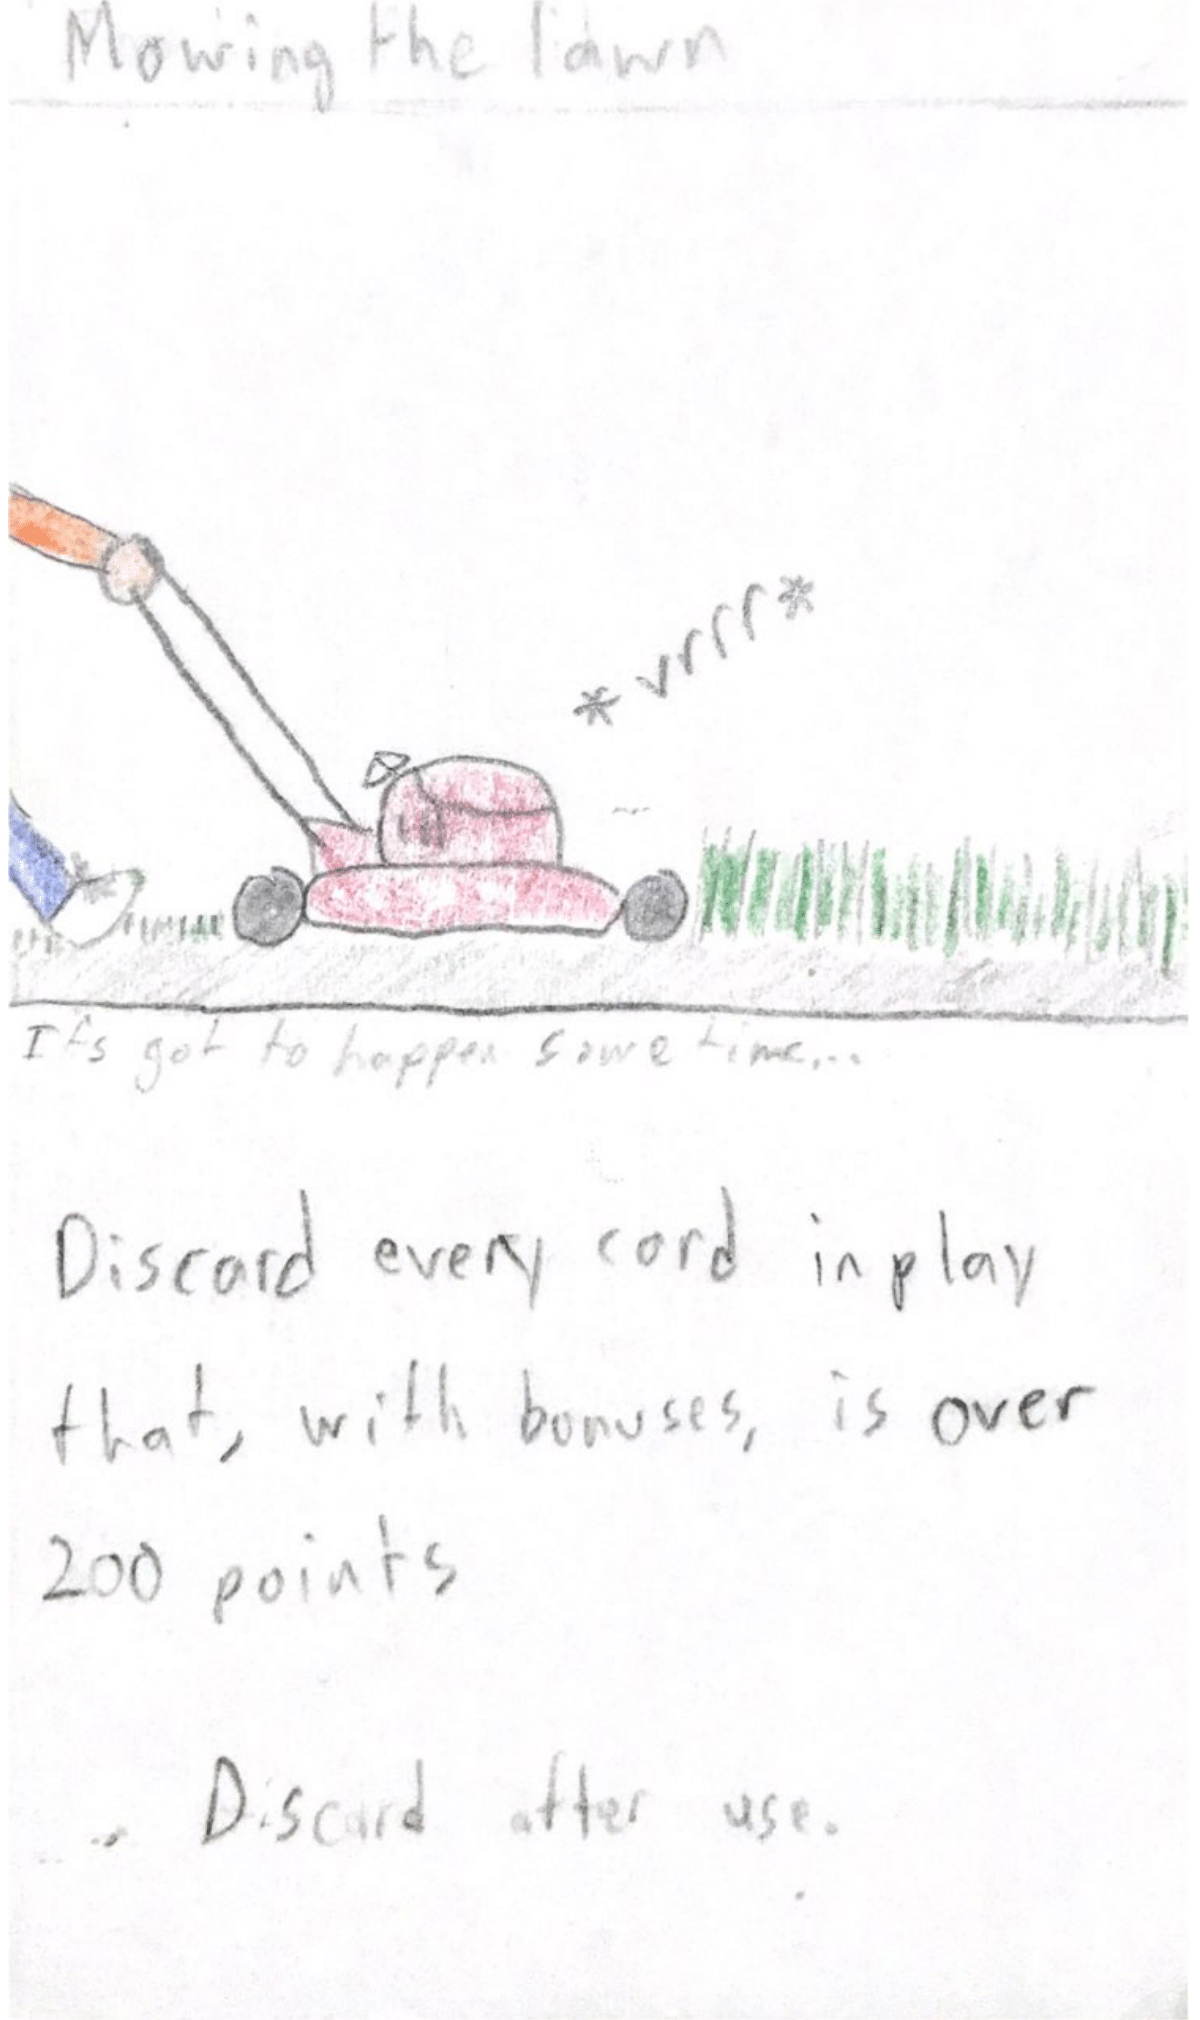 Mowing the lawn
*vrrr*
It's got to happen sometime...
Discard every card in play
that, with bonuses, is over
200 points
Discard after use.